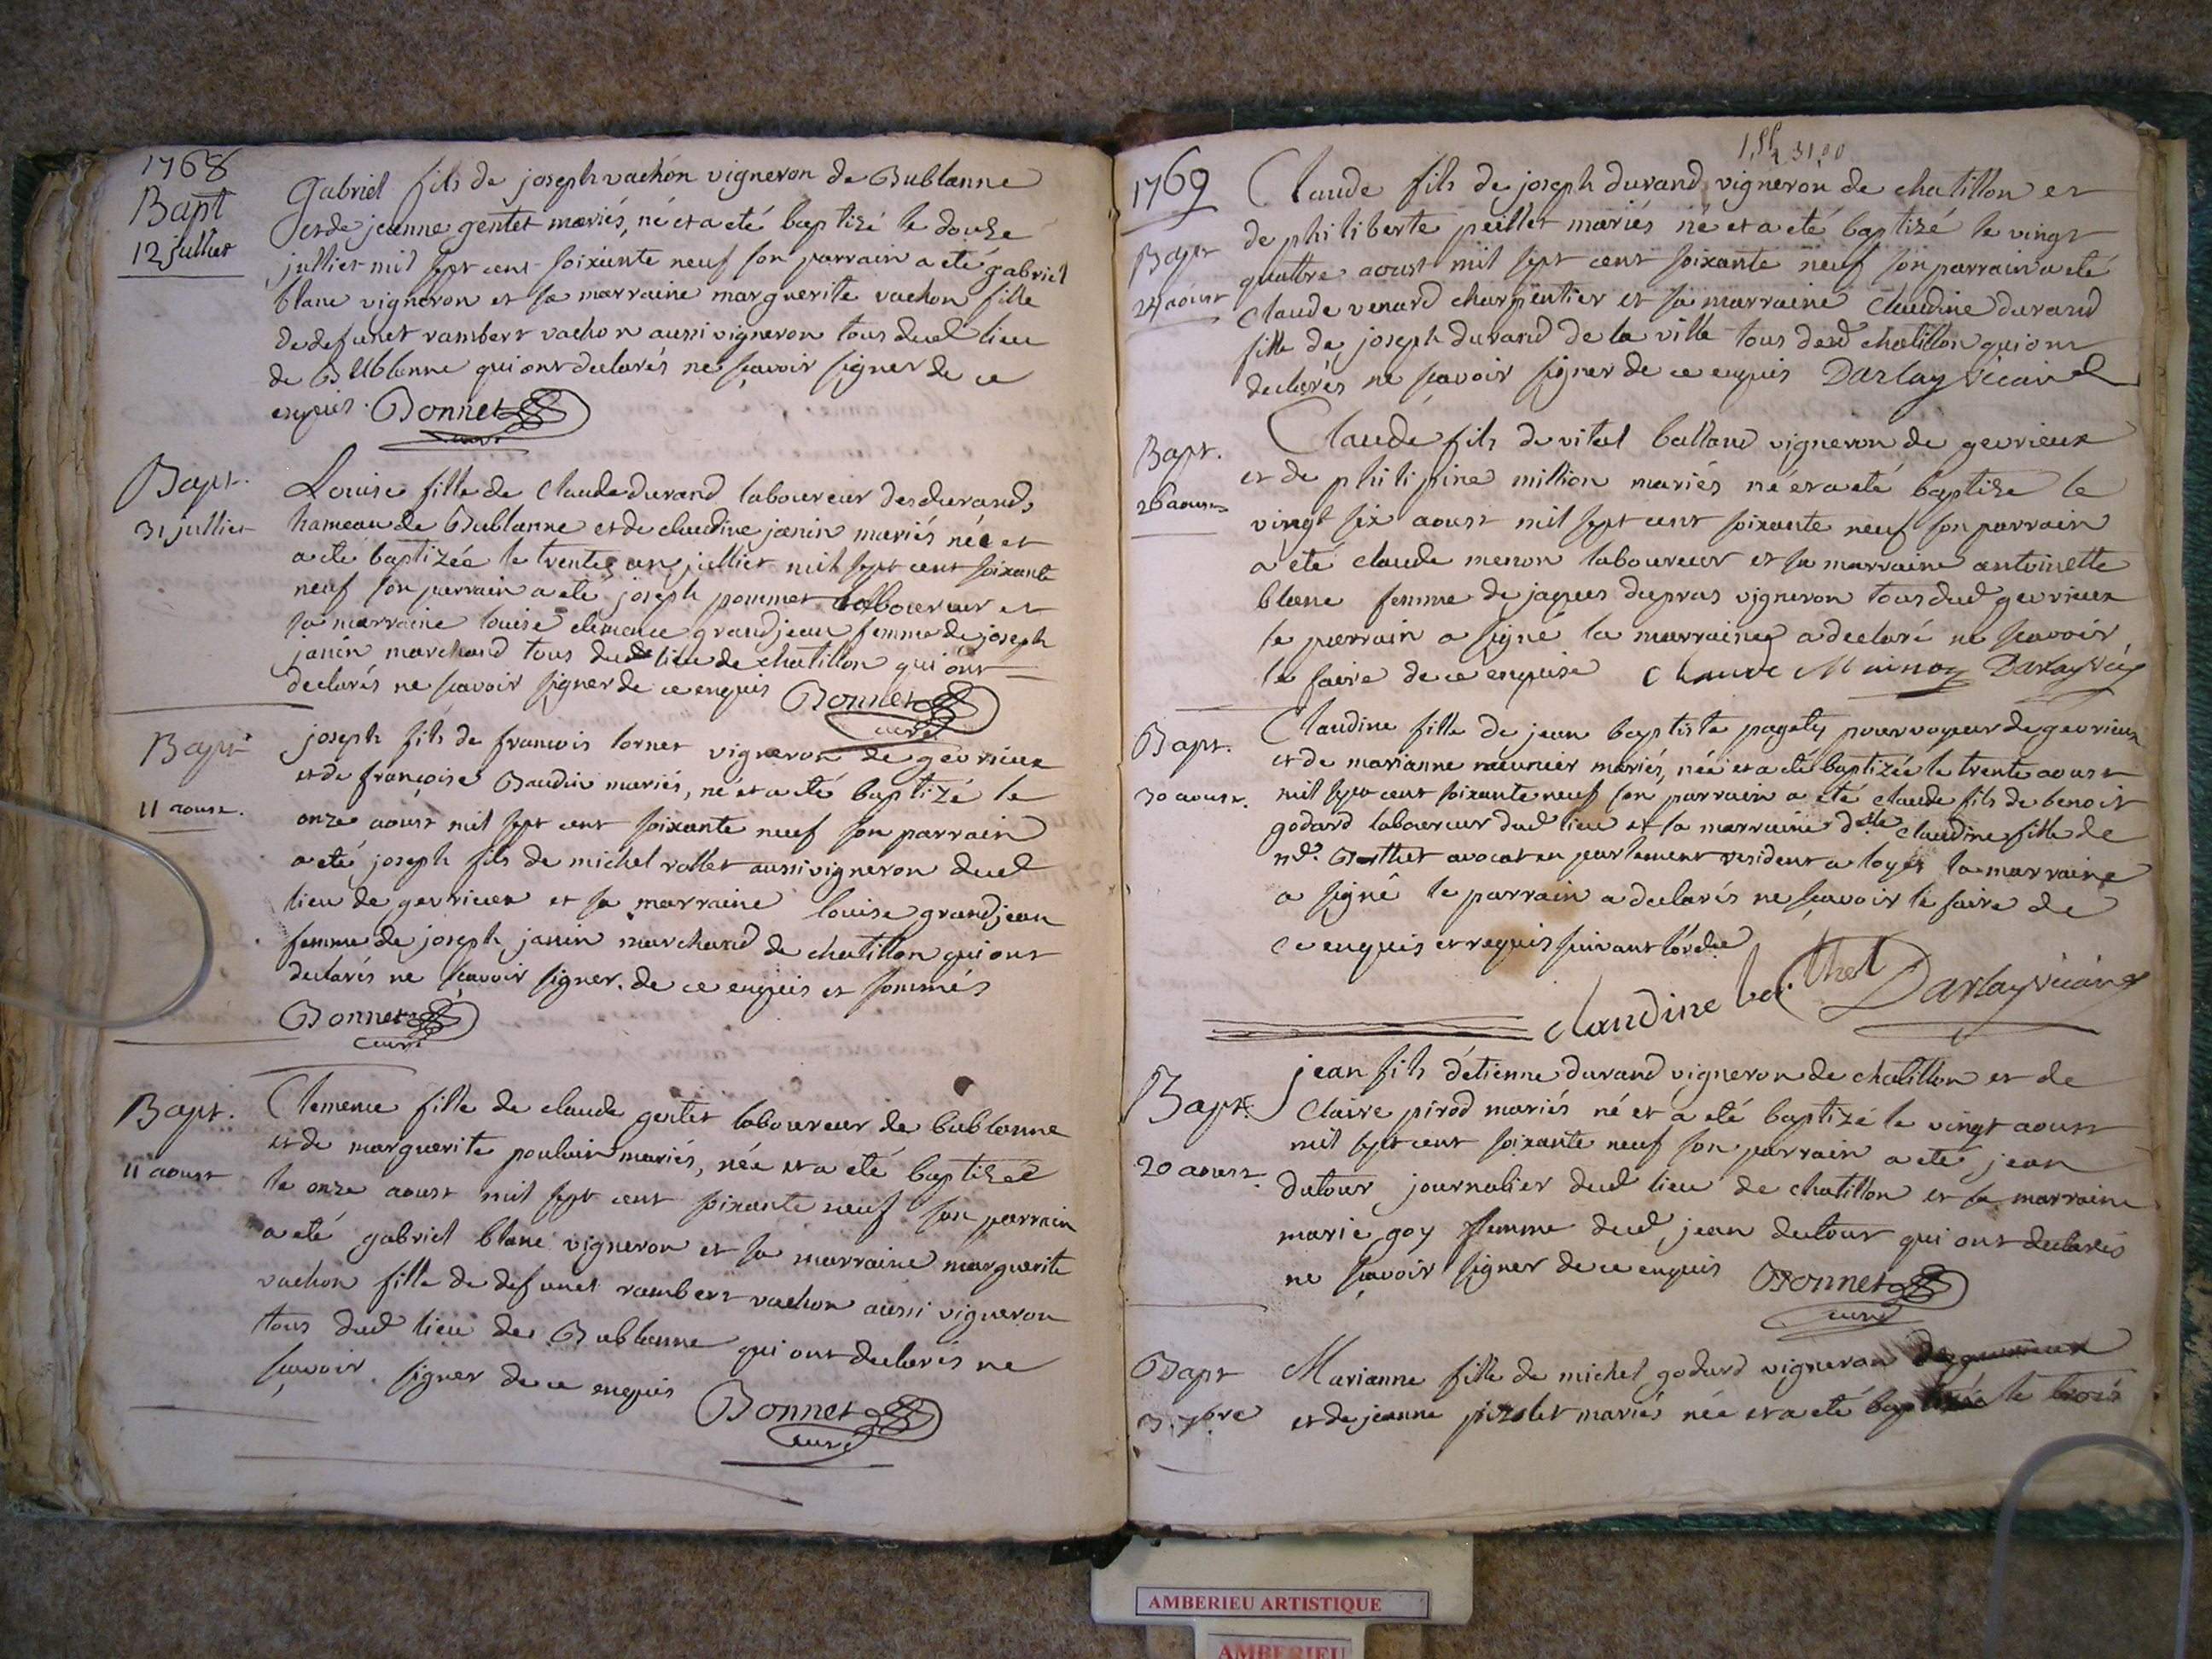 1768
Bapt
12 julliet
Gabriel fils de joseph vachon vigneron de Bublanne
et de jeanne gentet mariés, né et a eté baptizé le douze
julliet mil sept cent soixante neuf son parrain a eté gabriel
blanc vigneron et sa marraine marguerite vachon fille
de defunct rambert vachon aussi vigneron tous dud lieu
de Bublanne qui ont declarés ne sçavoir signer de ce
enquis. Bonnet
curé
Bapt.
31 julliet
Louise fille de Claude durand laboureur des durands
hameau de Bublanne et de claudine janin mariés née et
a eté baptizée le trente un julliet mil sept cent soixante
neuf son parrain a eté joseph pommet laboureur et
sa marraine louise clemence grandjean femme de joseph
janin marchand tous dud lieu de chatillon qui ont
declarés ne sçavoir signer de ce enquis Bonnet
curé
Bapt
11 aoust.
joseph fils de francois tornet vigneron de gevrieux
et de françoise Baudin mariés, né et a eté baptizé le
onze aoust mil sept cent soixante neuf son parrain
a eté joseph fils de michel rollet aussi vigneron dud
lieu de gevrieux et sa marraine louise grandjean
femme de joseph janin marchand de chatillon qui ont
declarés ne sçavoir signer. de ce enquis et sommés
Bonnet
curé
Bapt.
11 aoust
Clemence fille de claude gentet laboureur de bublanne
et de marguerite poulain mariés, née et a eté baptizée
le onze aoust mil sept cent soixante neuf son parrain
a eté gabriel blanc vigneron et sa marraine marguerite
vachon fille de defunct rambert vachon aussi vigneron
tous dud lieu de Bublanne qui ont declarés ne
sçavoir signer de ce enquis Bonnet
curé
1769
Bapt
24 aoust
Claude fils de joseph durand vigneron de chatillon et
de philiberte peillet mariés né et a eté baptizé le vingt
quattre aoust mil sept cent soixante neuf son parrain a eté
Claude venard charpentier et sa marraine Claudine durand
fille de joseph durand de la ville tous dud chatillon qui ont
declarés ne sçavoir signer de ce enquis Darlay vicaire
Bapt.
26 aoust
Claude fils de vital balland vigneron de gevrieux
et de philipine million mariés né et a eté baptize le
vingt six aoust mil sept cent soixante neuf son parrain
a eté claude menon laboureur et sa marraine antoinette
blanc femme de jaques dupras vigneron tous dud gevrieux
le parrain a signé la marraine a declaré ne sçavoir
le faire de ce enquise Claude Darlay vic
Bapt.
30 aoust.
Claudine fille de jean baptiste pagety pourvoyeur de gevrieux
et de marianne meunier mariés, née et a eté baptizée le trente aoust
mil sept cent soixante neuf son parrain a eté claude fils de benoit
godard laboureur dud lieu et la marraine dlle claudine fille de
Berthet avocat en parlement resident a loyes la marraine
a signé le parrain a declarés ne sçavoir le faire de
ce enquis et requis suivant l'ordce
claudine berthet Darlay vicaire
Bapt.
20 aoust.
jean fils d'etienne durand vigneron de chatillon et de
Claire pirod mariés né et a eté baptizé le vingt aoust
mil sept cent soixante neuf son parrain a eté jean
dutour journalier dud lieu de chatillon et sa marraine
marie goy femme dud jean dutour qui ont declarés
ne sçavoir signer de ce enquis Bonnet
curé
Bapt
3. 7bre
Marianne fille de michel godard vigneron de gevrieux
et de jeanne mariés née et a eté baptizée le trois
AMBERIEU ARTISTIQUE
AMBERIEU